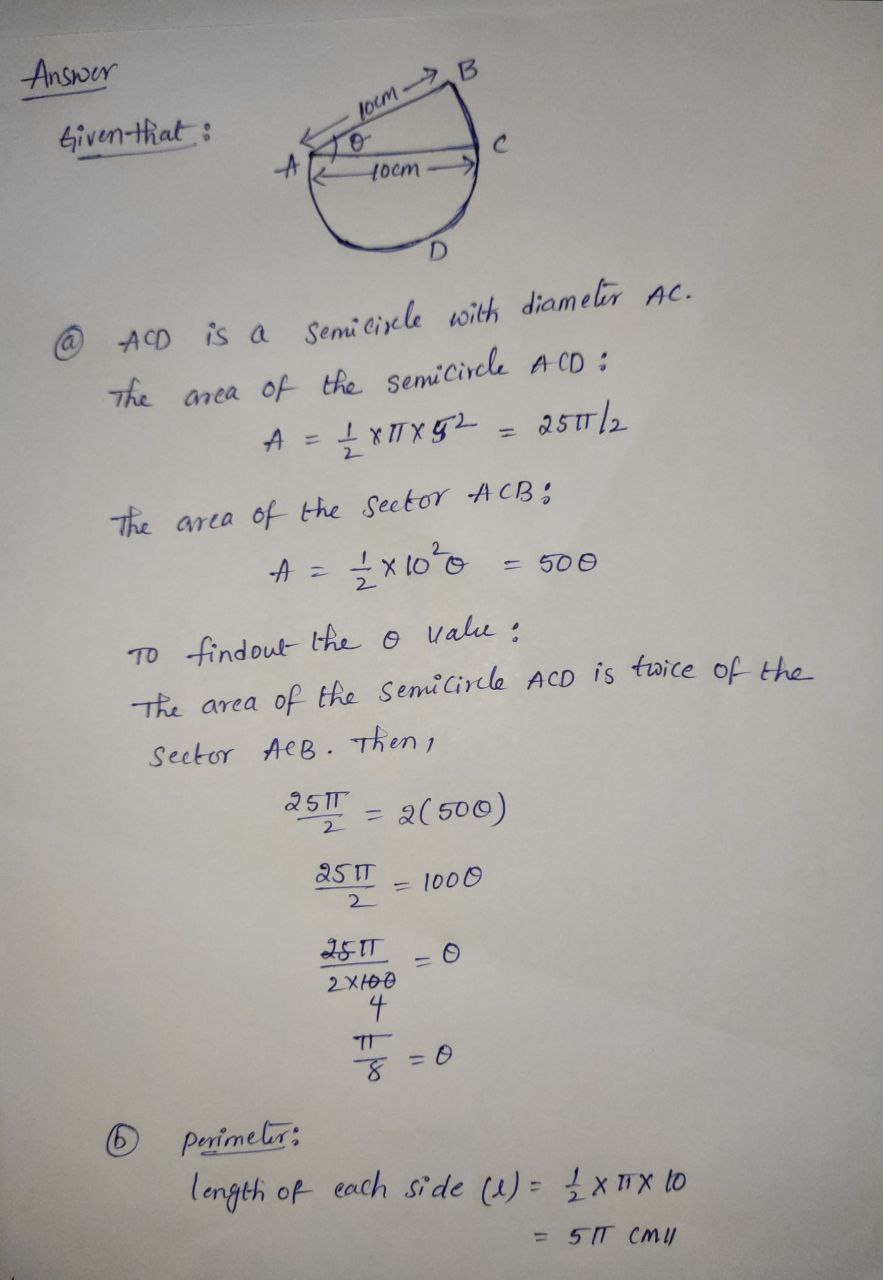 Answer
Given that :
B
10cm
θ
A
C
10cm
D
ⓐ ACD is a semicircle with diameter AC.
The area of the semicircle ACD :
A = 1/2 × π × 5² = 25π/2
The area of the sector ACB :
A = 1/2 × 10²θ = 50θ
To findout the θ value :
The area of the semicircle ACD is twice of the
sector ACB. Then,
25π/2 = 2(50θ)
25π/2 = 100θ
25π/2×100 = θ
4
π/8 = θ
ⓑ perimeter :
length of each side (l) = 1/2 × π × 10
= 5π cm//